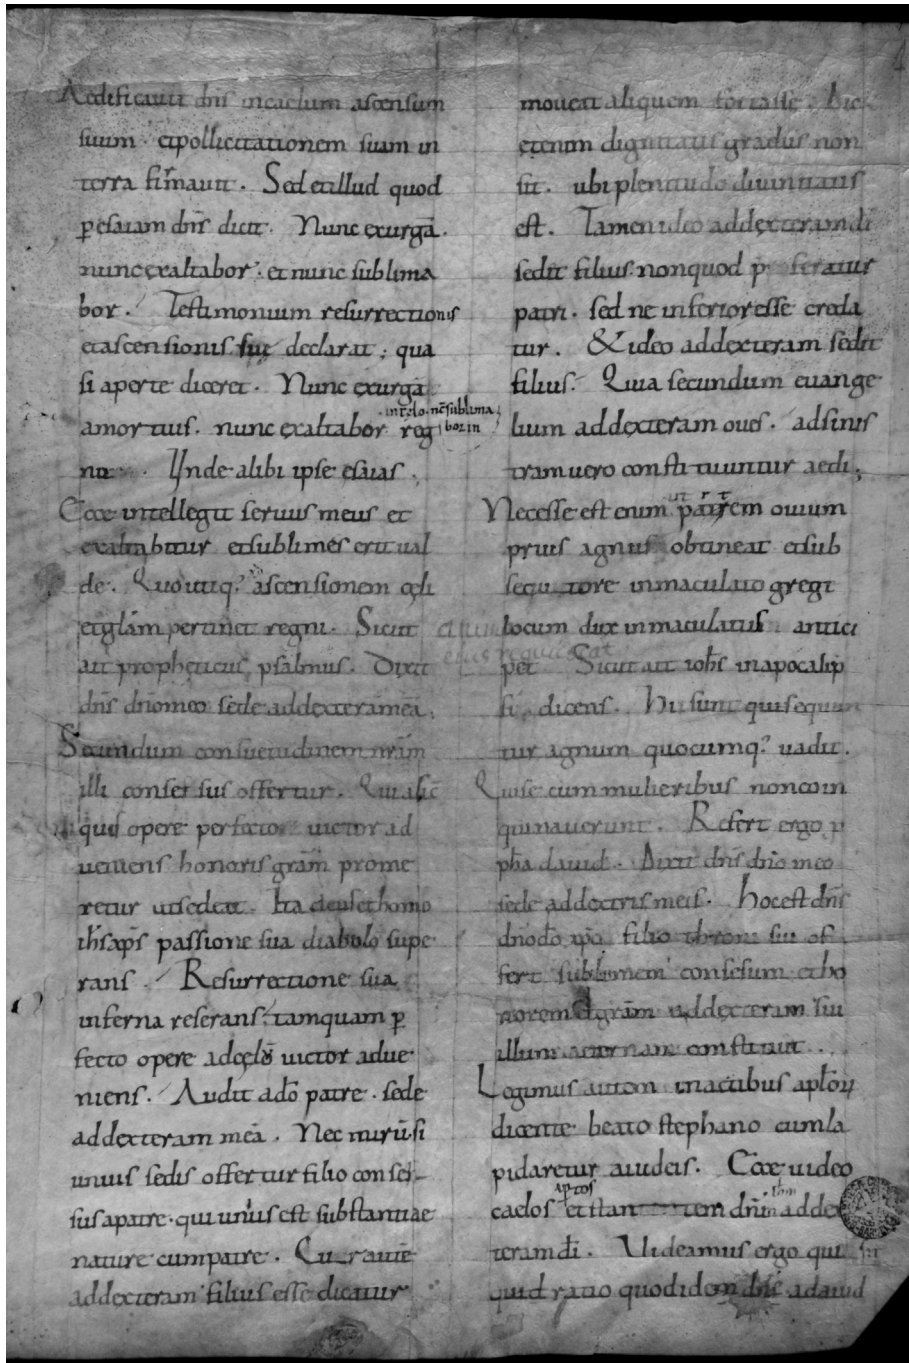 Aedificauit dn̄s incaelum ascensum
suum · etpollicitationem suam in
terra firmauit . Sed etillud quod
p̱ esaiam dn̄s dicit . Nunc exurgā .
nunc exaltabor · et nunc sublima
bor . Testimonium resurrectionis
etascensionis suę declarat ; qua
si aperte diceret . Nunc exurgā
· incelo · nc̄ sublima
amortuis . nunc exaltabor reg bor in
no . Unde alibi ipse esaias .
Ecce intelleget seruus meus et
exaltabitur etsublimes erit ual
de . Quod utiq; ascensionem cęli
etgłam pertinet regni . Sicut
ait propheticus psalmus . Dixit
dn̄s dn̄o meo sede addexterā meā .
Secundum consuetudinem nr̄am
illi consessus offertur . Qui
opere perfecto uictor ad
ueniens honoris gram̄ prome
retur utsedeat . Ita deus et homo
ih̄s xp̄s passione sua diabolo supe
rans . Resurrectione sua
inferna reserans . tamquam p̱
fecto opere adcęlos uictor adue
niens . Audit ado̅ patre . sede
addexteram meā . Nec mirū si
unius sedis offertur filio conses
sus apatre · qui unius est substantiae
nature cumpatre .
addexteram filius esse dicatur
moueat aliquem fortasse .
etenim dignitatis gradus non
sit . ubi plenitudo diuinitatis
est . Tamen ideo addexteram dī
sedit filius non quod p feratur
patri . sed ne inferior esse creda
tur . & ideo addexteram sedit
filius . Quia secundum euange
lium addexteram oues . adsinis
tram uero constituuntur aedi ;
Necesse est enim ut ouium
prius agnus obtineat etsub
tore inmaculato gregi
eius requiescat
locum dux inmaculatus antici
pet Sicut ait ioh̄s inapocalip
si dicens . Hi sunt qui sequun
tur agnum quocumq; uadit .
Quise cum mulieribus noncoin
quinauerunt . Refert ergo p
ph̄a dauid . Dixit dn̄s dn̄o meo
sede addextris meis . Hoc est dn̄s
filio throni sui of
fert sublimem consesum etho
norem addexteram sui
illum aeternam constituit .
Legimus autem inactibus
dicente beato stephano cumla
pidaretur aiudeis . Ecce uideo
aptos ihm
caelos etstantem dn̄m addex
teram dī . Uideamus ergo qui sit
quid ratio quod idem dn̄s adauid